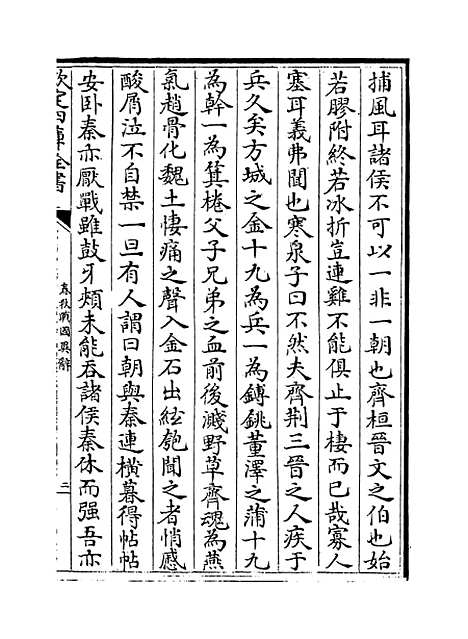 捕風耳諸侯不可以一非一朝也齊桓晉文之伯也始
若膠附終若氷折豈連雞不能俱止于棲而已哉寡人
塞耳義弗聞也寒泉子曰不然夫齊荆三晉之人疾于
兵久矣方城之金十九為兵一為鎛銚董澤之蒲十九
為幹一為箕棬父子兄弟之血前後濺野草齊魂為燕
氣趙骨化魏土悽痛之聲入金石出絃匏聞之者悄感
酸屑泣不自禁一旦有人謂曰朝與秦連横暮得帖帖
安卧秦亦厭戰雖鼓牙頰未能吞諸侯秦休而强吾亦
欽定四庫全書
春秋戰國異辭
三